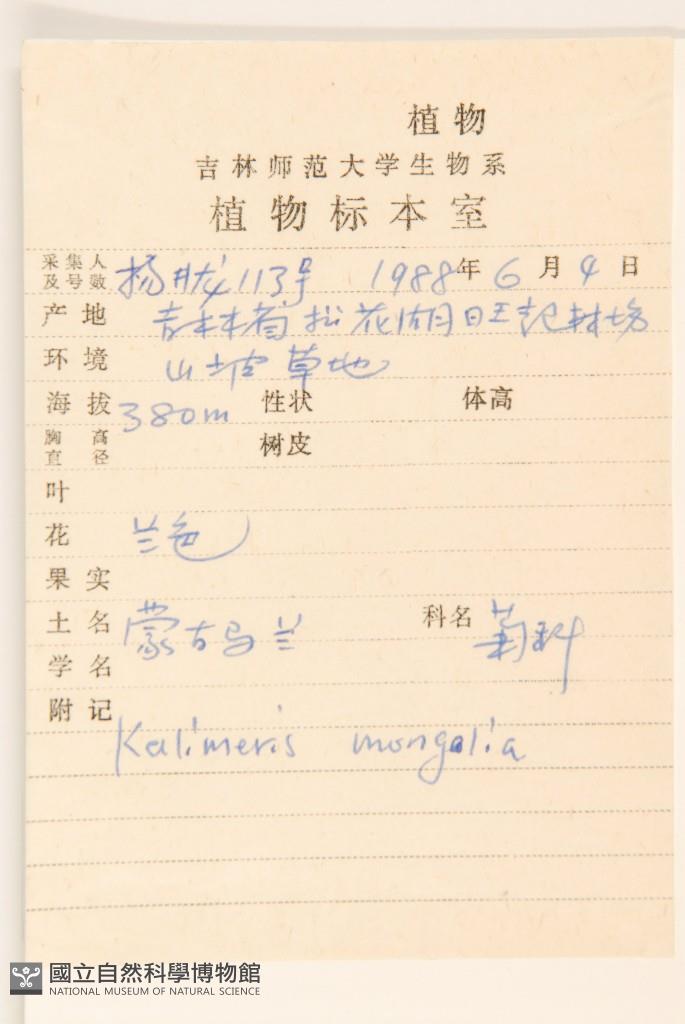 植物
吉林师范大学生物系
植物标本室
采集人及号数 杨 113号 1988年 6月 4日
产地 吉林省松花湖旺起林场
环境 山坡草地
海拔 380m 性状 体高
胸高直径 树皮
叶
花 兰色
果实
土名 蒙古马兰 科名 菊科
学名
附记
Kalimeris mongolia
國立自然科學博物館
NATIONAL MUSEUM OF NATURAL SCIENCE